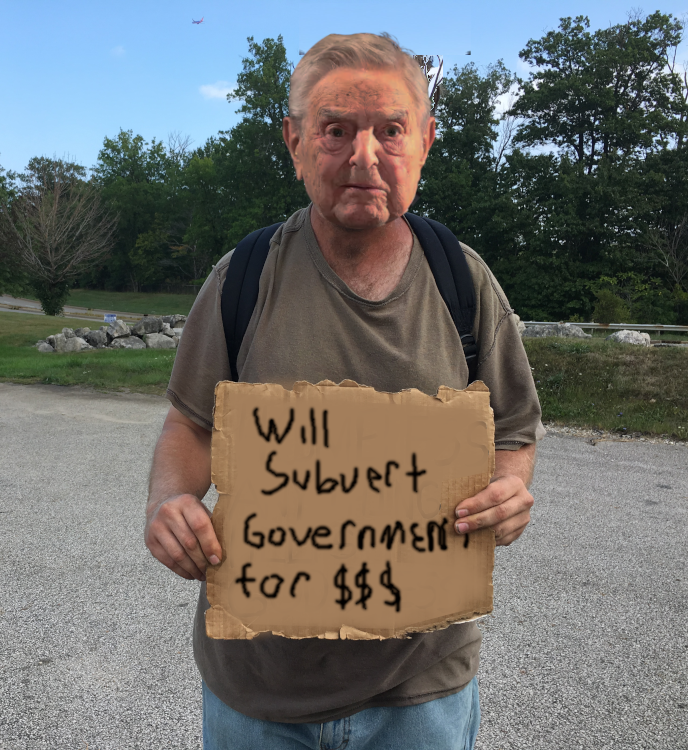 Will
Subvert
Government
for $$$